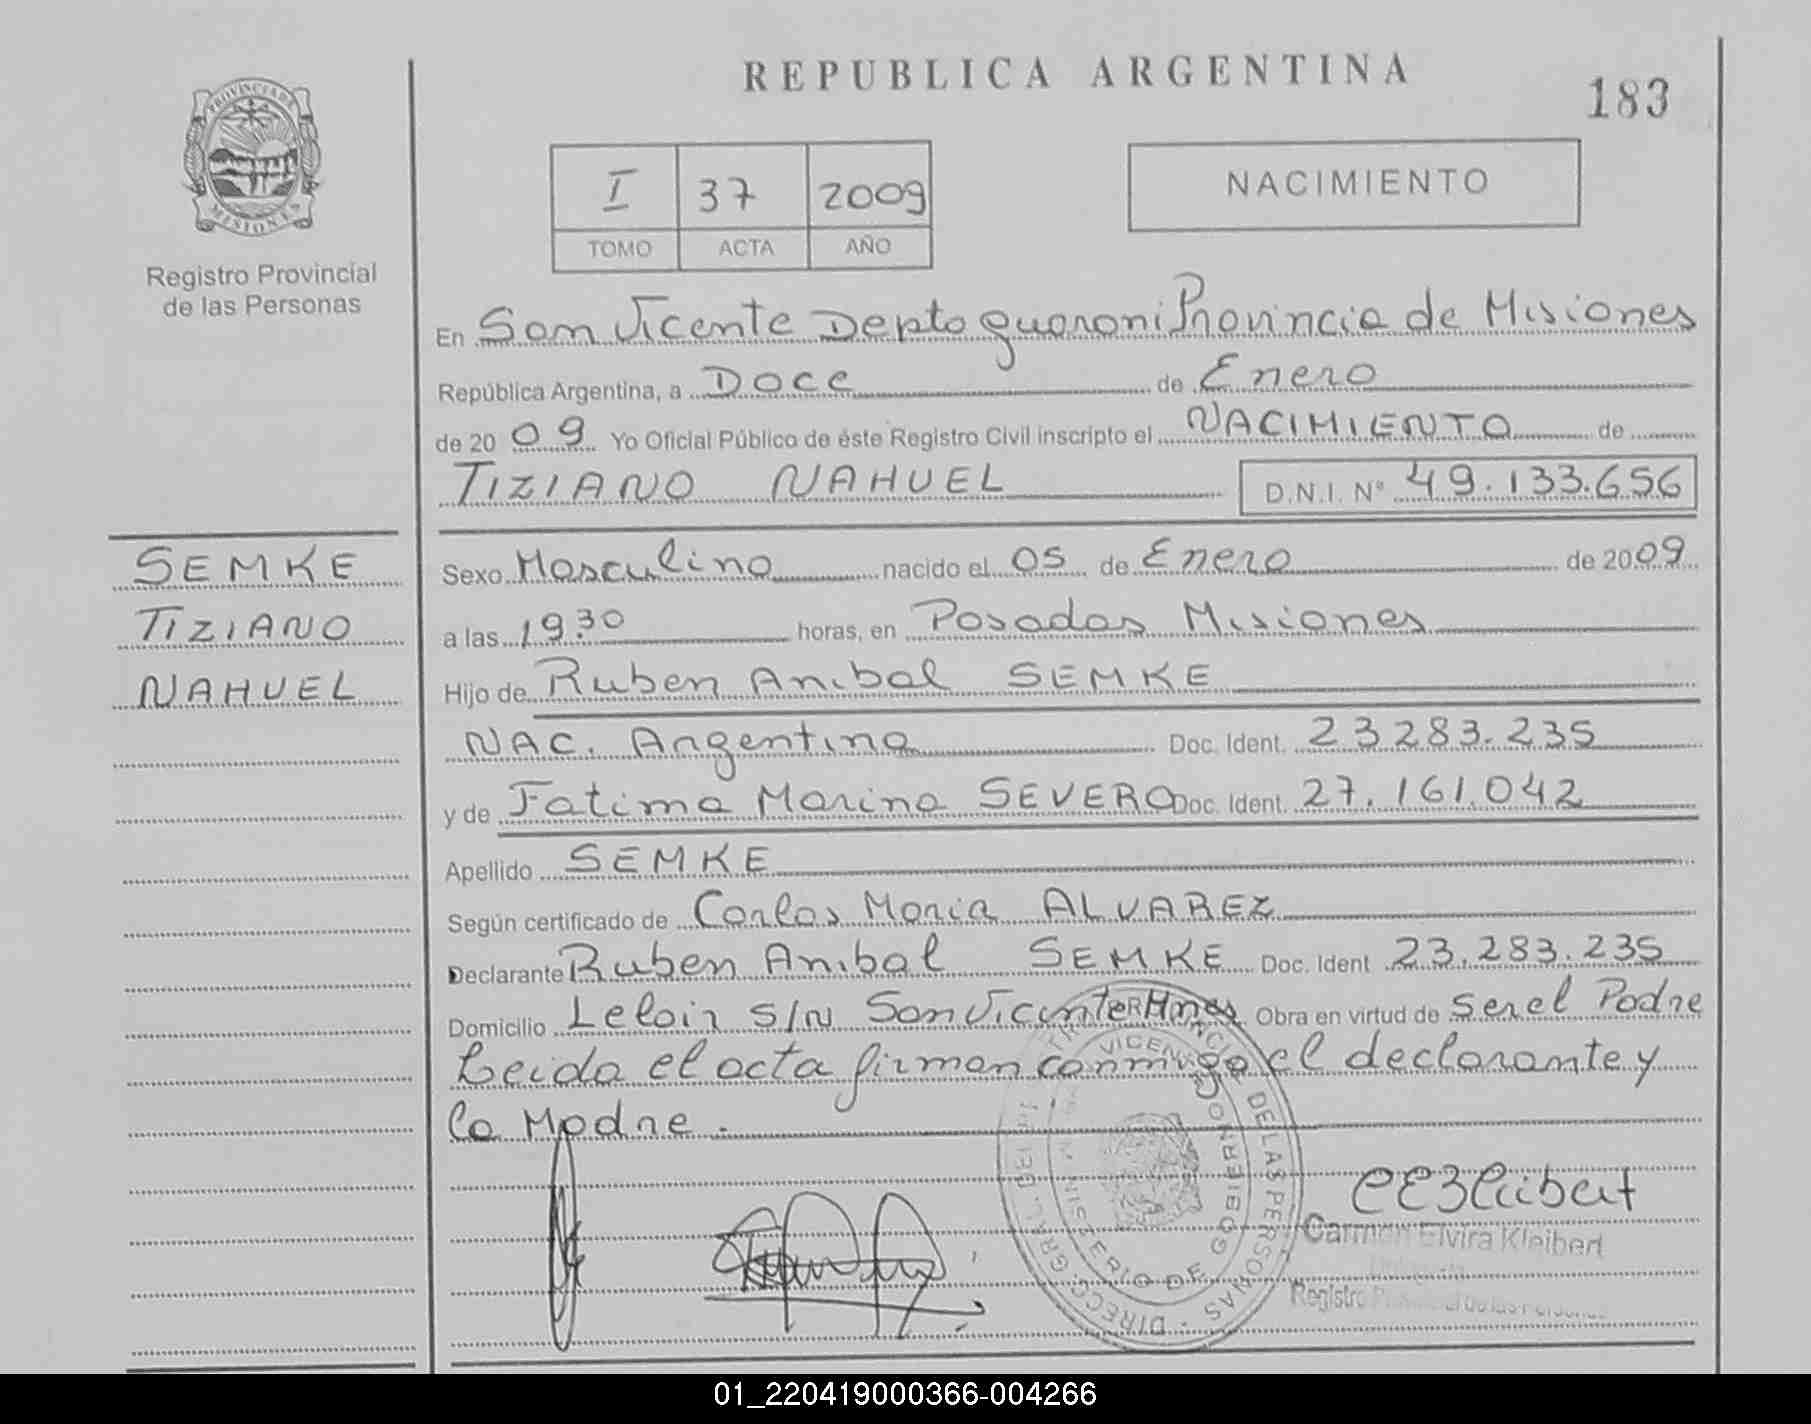 REPUBLICA ARGENTINA
183
PROVINCIA DE
MISIONES
Registro Provincial
de las Personas
I 37 2009
TOMO ACTA AÑO
NACIMIENTO
En San Vicente Depto guarani Provincia de Misiones
República Argentina, a Doce de Enero
de 20 09 Yo Oficial Público de éste Registro Civil inscripto el NACIMIENTO de
TIZIANO NAHUEL D.N.I. Nº 49.133.656
SEMKE
TIZIANO
NAHUEL
Sexo Masculino nacido el 05 de Enero de 2009
a las 19.30 horas, en Posadas Misiones
Hijo de Ruben Anibal SEMKE
NAC. Argentina Doc. Ident. 23283.235
y de Fatima Marina SEVERO Doc. Ident. 27.161.042
Apellido SEMKE
Según certificado de Carlos Maria ALVAREZ
Declarante Ruben Anibal SEMKE Doc. Ident 23.283.235
Domicilio Leloir s/N San Vicente Mnes Obra en virtud de ser el Padre
Leida el acta firman conmigo el declarante y
la Madre.
DE LAS PERSONAS
MINISTERIO DE GOBIERNO
Carmen Elvira Kleibert
Registro
01_220419000366-004266